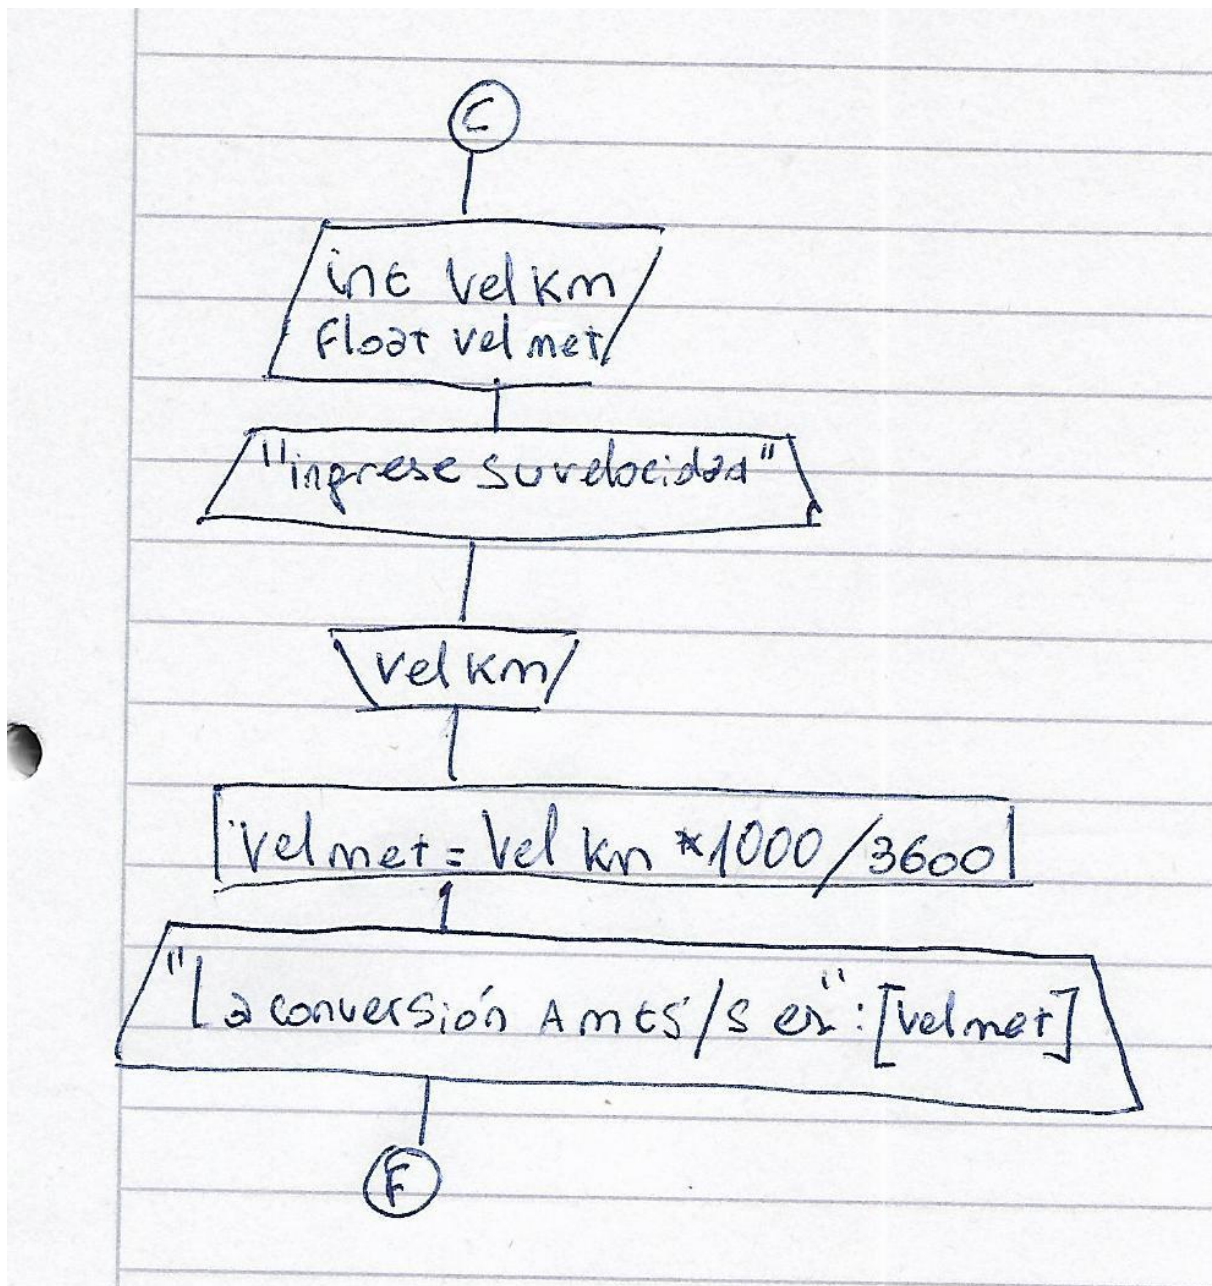 C
int Vel Km
Float vel met
"ingrese su velocidad"
vel Km
Vel met = Vel km *1000/3600
"La conversión A mts/s es": [vel met]
F